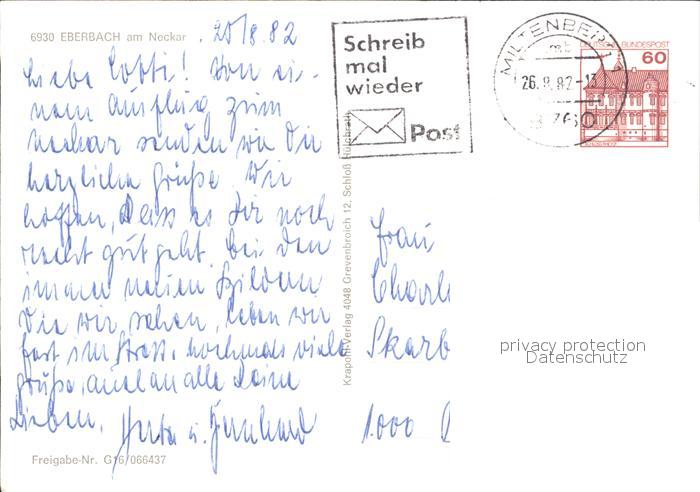 6930 EBERBACH am Neckar . 25/8.82
Liebe Lotti! Von ei-
nem Ausflug zum
Neckar senden wir Dir
herzliche Grüße. Wir
hoffen, dass es Dir noch
recht gut geht. Bei den
immer neuen Bildern
die wir sehen, leben wir
fast im Streß. Nochmals viele
Grüße, auch an alle Deine
Lieben. Herta u.
Freigabe-Nr. G16/066437
Krapohl-Verlag 4048 Grevenbroich 12, Schloß Hülchrath
Schreib
mal
wieder
Post
MILTENBERG
26.8.82-13
8760
DEUTSCHE BUNDESPOST
60
Frau
Charl
Skarb
1000
privacy protection
Datenschutz